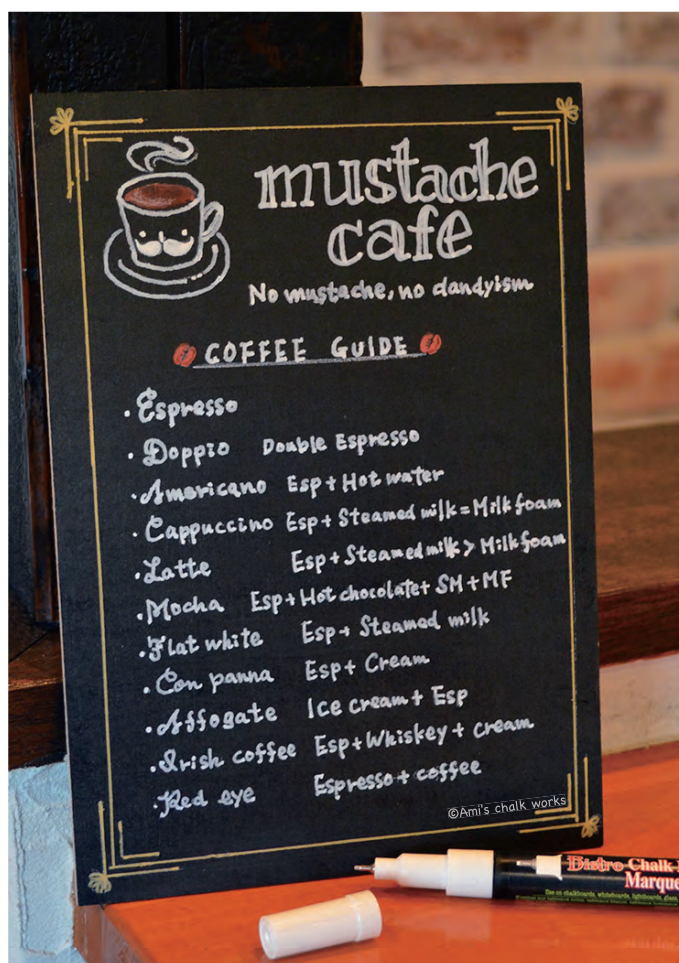 mustache
cafe
No mustache, no dandyism
COFFEE GUIDE
· Espresso
· Doppio Double Espresso
· Americano Esp + Hot water
· Cappuccino Esp + Steamed milk = Milk foam
· Latte Esp + Steamed milk > Milk foam
· Mocha Esp + Hot chocolate + SM + MF
· Flat white Esp + Steamed milk
· Con panna Esp + Cream
· Affogate Ice cream + Esp
· Irish coffee Esp + Whiskey + cream
· Red eye Espresso + coffee
©Ami's chalk works
Bistro Chalk
Marque
Use on chalkboards, whiteboards, lightboards, glass,